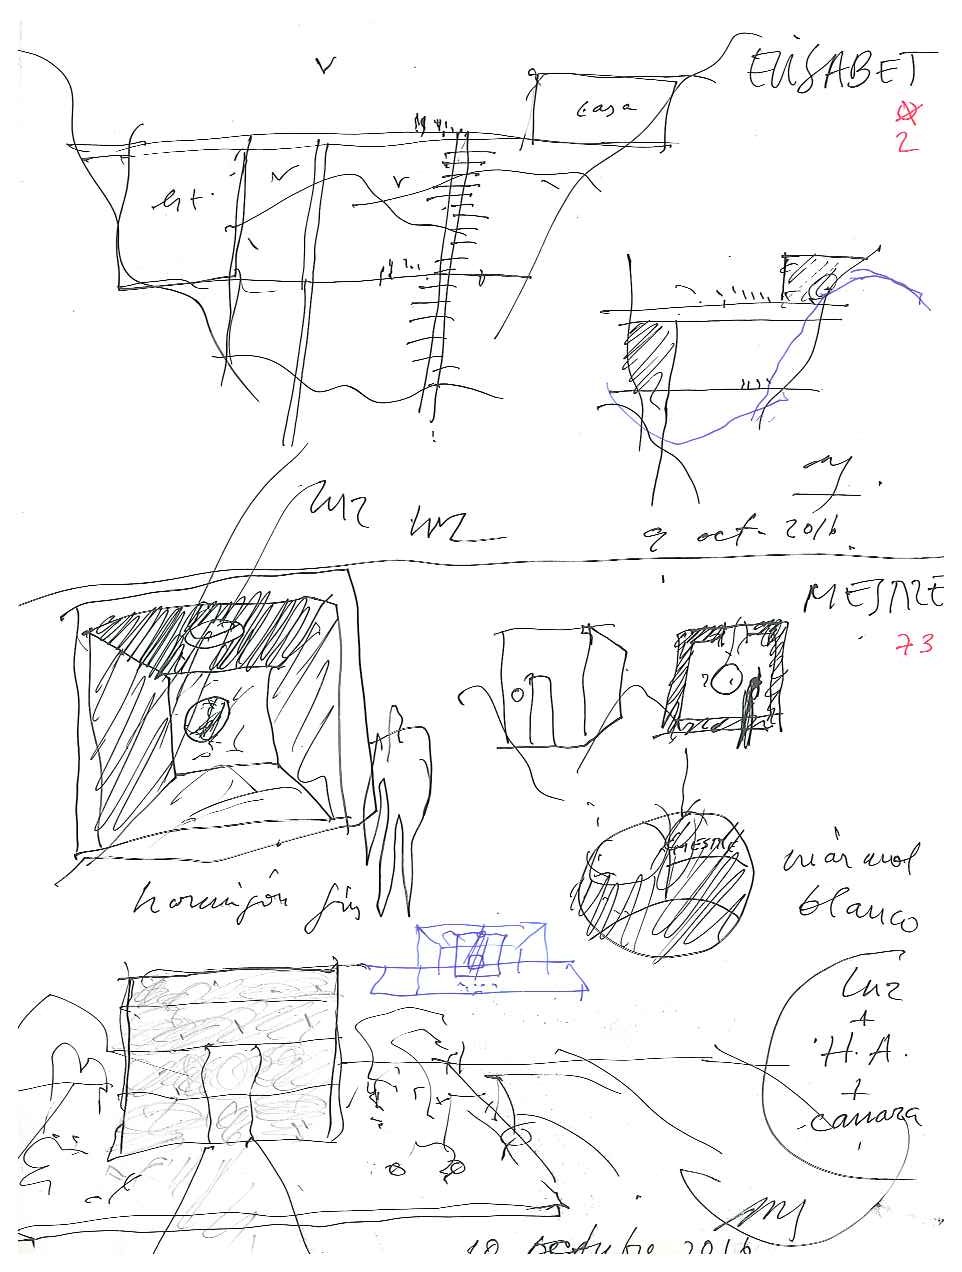 ELISABET
2
casa
est.
9 oct. 2016
luz
luz
MESTRE
73
MESTRE
hormigón gris
mármol
blanco
luz
+
H.A.
+
carrara
10 octubre 2016